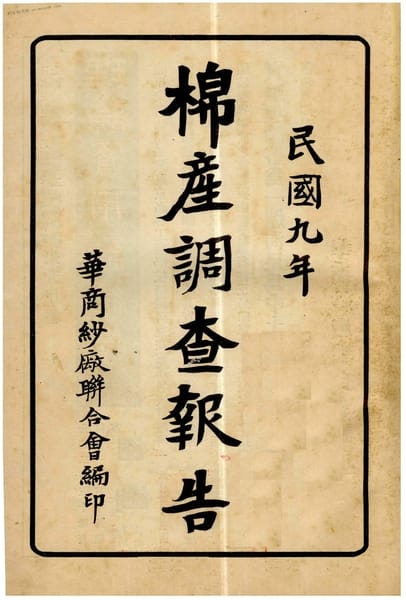 民國九年
棉產調查報告
華商紗廠聯合會編印